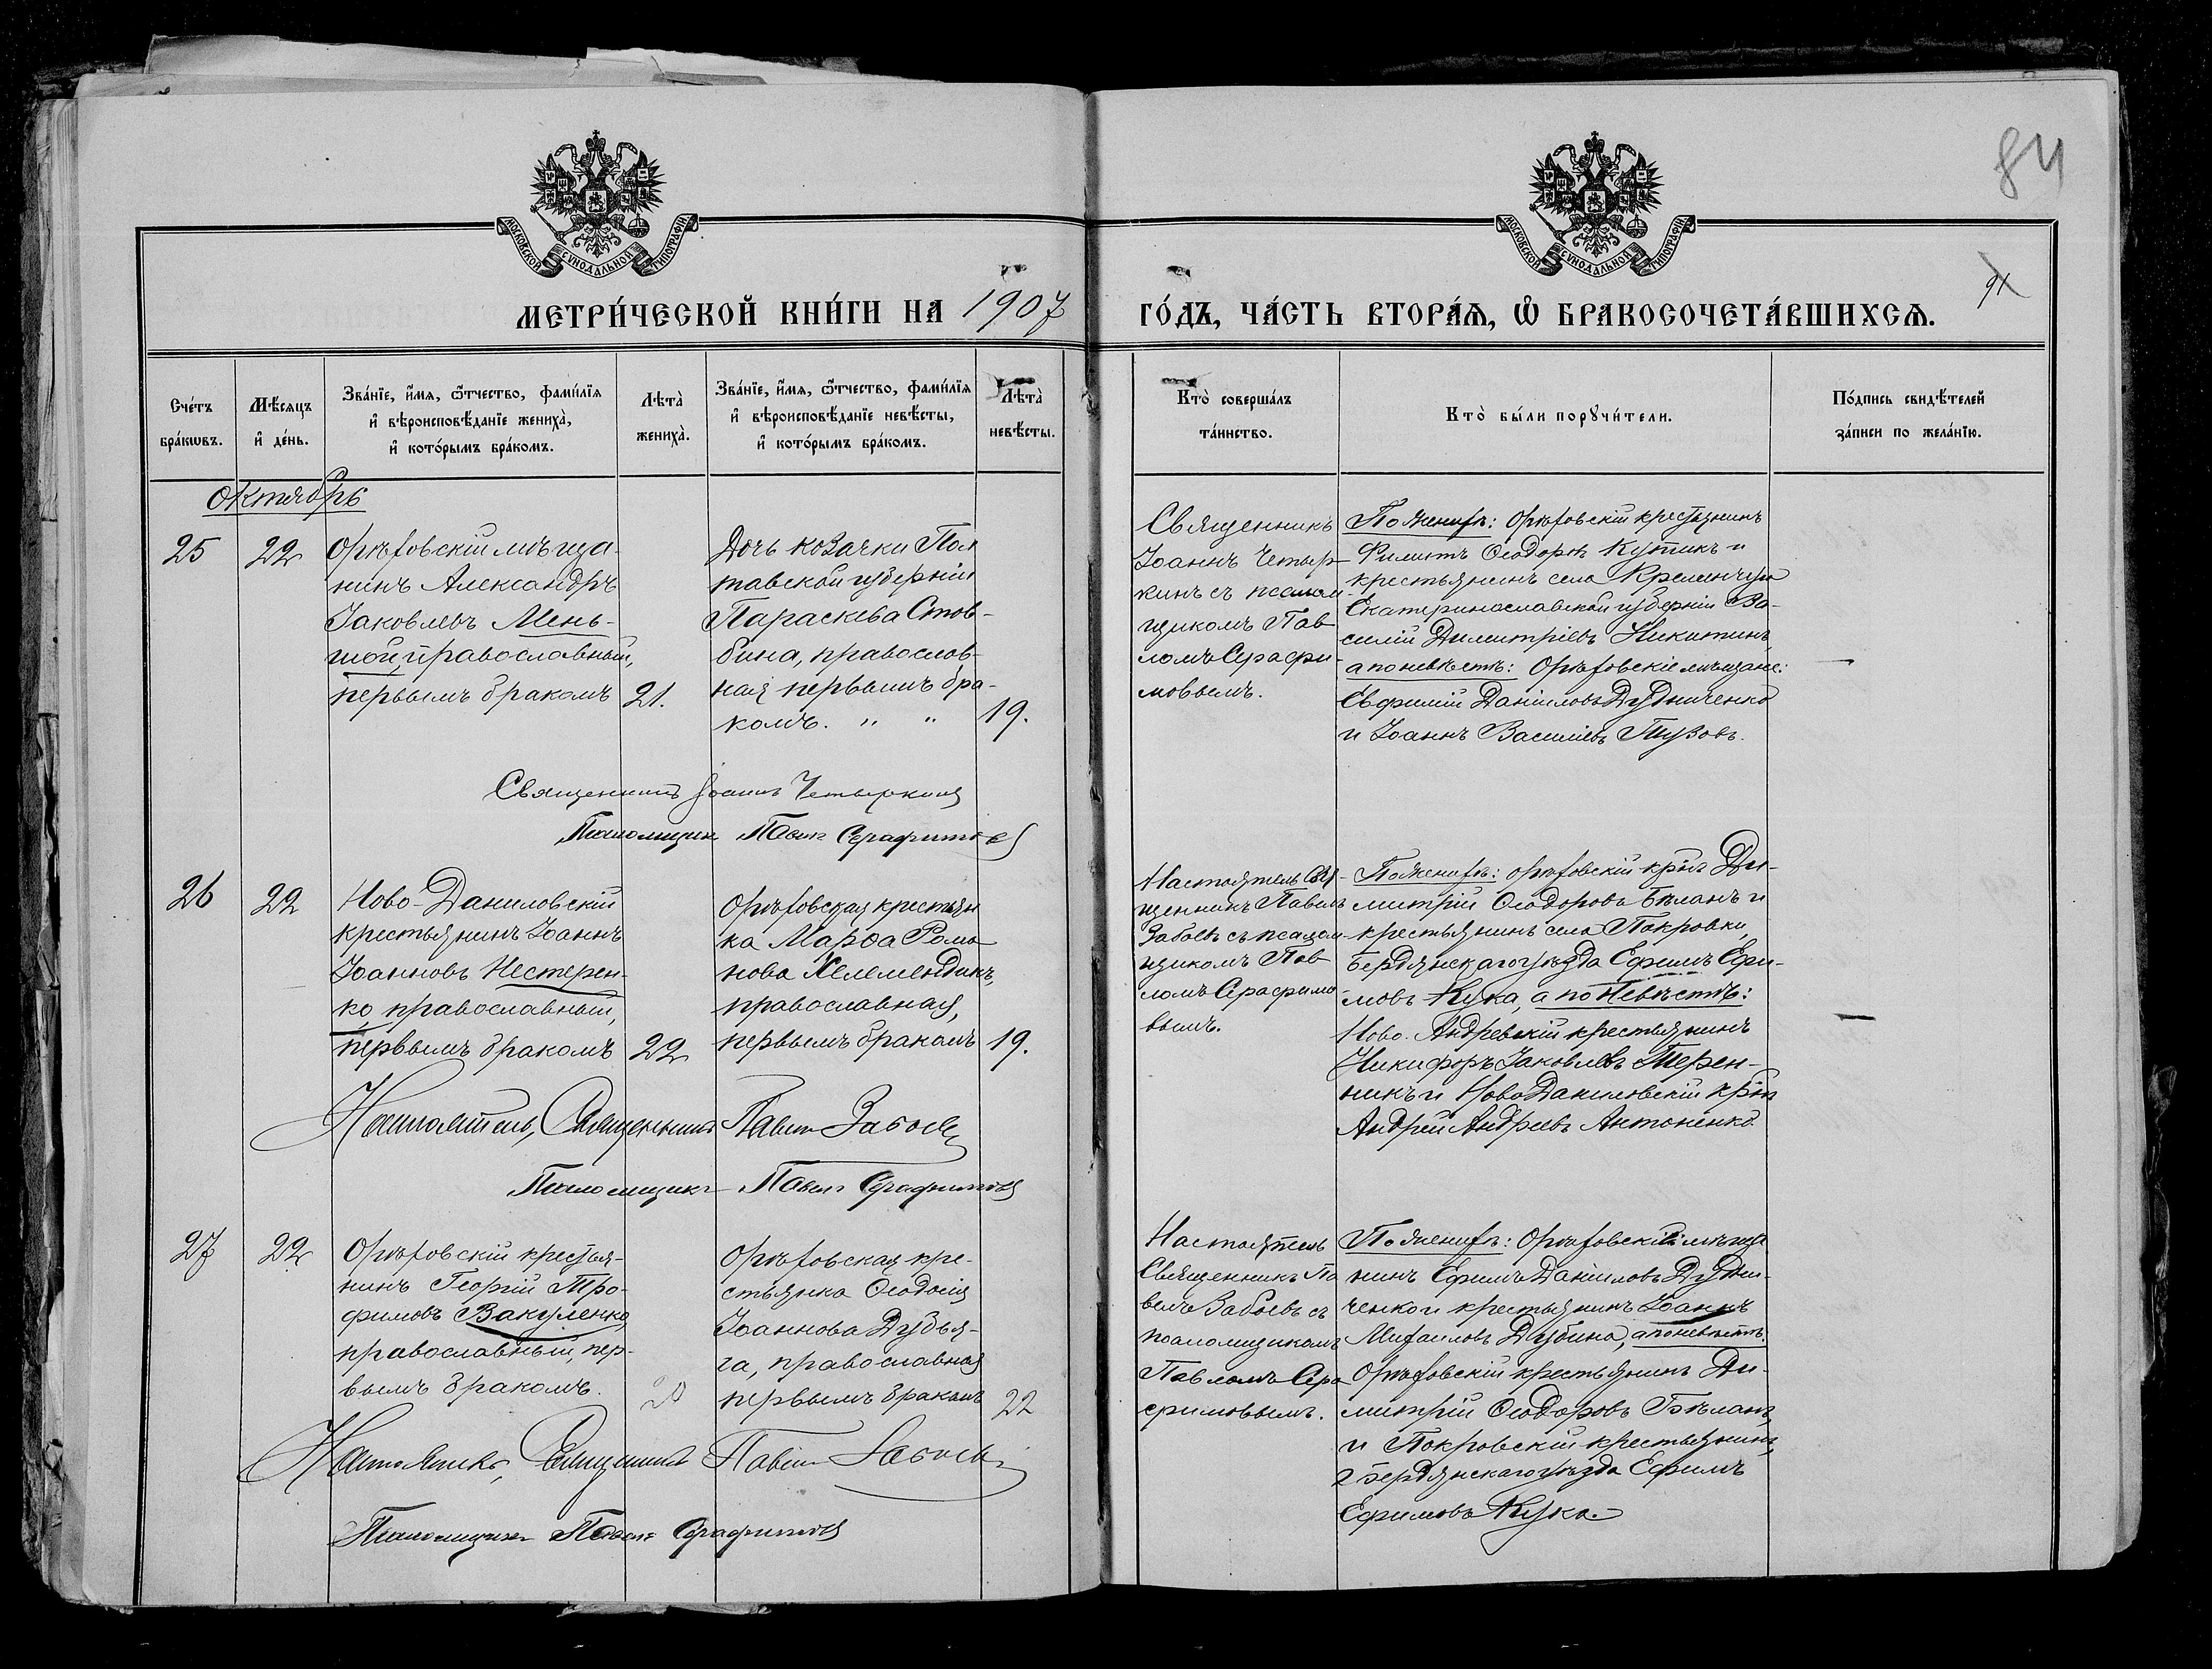 84
91
МОСКОВСКОЙ СѴНОДАЛЬНОЙ ТИПОГРАФІИ
МОСКОВСКОЙ СѴНОДАЛЬНОЙ ТИПОГРАФІИ
МЕТРИ́ЧЕСКОЙ КНИ́ГИ НА 1907 ГО́ДЪ, ЧА́СТЬ ВТОРА́Ѧ, Ѽ БРАКОСОЧЕТА́ВШИХСѦ.
Сче́тъ
бра́кѡвъ.
Мѣ́сяцъ
и҆ де́нь.
Зва́нїе, и҆́мѧ, ѻ҆́тчество, фами́лїѧ
и҆ вѣроисповѣ́данїе жениха̀,
и҆ кото́рымъ бра́комъ.
Лѣта̀
жениха̀.
Зва́нїе, и҆́мѧ, ѻ҆́тчество, фами́лїѧ
и҆ вѣроисповѣ́данїе невѣ́сты,
и҆ кото́рымъ бра́комъ.
Лѣта̀
невѣ́сты.
Кто̀ соверша́лъ
та́инство.
Кто̀ бы́ли порꙋчи́тели.
По́дпись свидѣ́телей
за́писи по жела́нїю.
Октябрь
25
22
Орѣховскій мѣща-
нинъ Александръ
Іаковлевъ Мень-
шой, православный,
первымъ бракомъ
21.
Дочь козачки Пол
тавской губерніи
Параскева Стов-
бина, православ-
ная первымъ бра-
комъ. " "
19.
Священникъ
Іоаннъ Четыр-
кинъ съ псалом-
щикомъ Пав-
ломъ Серафи-
мовымъ.
По женихѣ: Орѣховскій крестьянинъ
Филиппъ Ѳеодоровъ Купикъ и
крестьянинъ села Кременчука
Екатеринославской губерніи Ва-
силій Димитріевъ Никитинъ,
а по невѣстѣ: Орѣховскіе мѣщане:
Евфимій Даніиловъ Дудниченко
и Іоаннъ Василіевъ Тузовъ.
Священникъ Іоаннъ Четыркинъ
Псаломщикъ Павелъ Серафимовъ
26
22
Ново-Даниловскій
крестьянинъ Іоаннъ
Іоанновъ Нестерен-
ко православный,
первымъ бракомъ
22
Орѣховская крестьян
ка Марѳа Рома
нова Келемендикъ,
православная,
первымъ бракомъ
19.
Настоятель Свя-
щенникъ Павелъ
Забоевъ съ псалом-
щикомъ Пав-
ломъ Серафимо-
вымъ.
По женихѣ: Орѣховскій кр-нъ Ди-
митрій Ѳеодоровъ Бѣланъ и
крестьянинъ села Покровки,
Бердянскаго уѣзда Ефимъ Ефи-
мовъ Кука, а по невѣстѣ:
Ново-Андревскій крестьянинъ
Никифоръ Іаковлевъ Терен-
никъ и Ново Даниловскій кр-нъ
Андрей Андреевъ Антоненко
Настоятель, Священникъ Павелъ Забоевъ
Псаломщикъ Павелъ Серафимовъ
27
22
Орѣховскій крестья-
нинъ Георгій Тро-
фимовъ Вакуленко,
православный, пер-
вымъ бракомъ.
20
Орѣховская кре-
стьянка Ѳеодосія
Іоаннова Дубья-
га, православная
первымъ бракомъ
22
Настоятель
Священникъ Па
велъ Забоевъ съ
псаломщикомъ
Павломъ Сера
фимовымъ.
По женихѣ: Орѣховскій мѣща
нинъ Ефимъ Даніиловъ Дудни-
ченко и крестьянинъ Іоаннъ
Михаиловъ Дубина, а по невѣстѣ:
Орѣховскій крестьянинъ Ди-
митрій Ѳеодоровъ Бѣланъ,
и Покровскій крестьянинъ,
Бердянскаго уѣзда Ефимъ
Ефимовъ Кука.
Настоятель, Священникъ Павелъ Забоевъ
Псаломщикъ Павелъ Серафимовъ